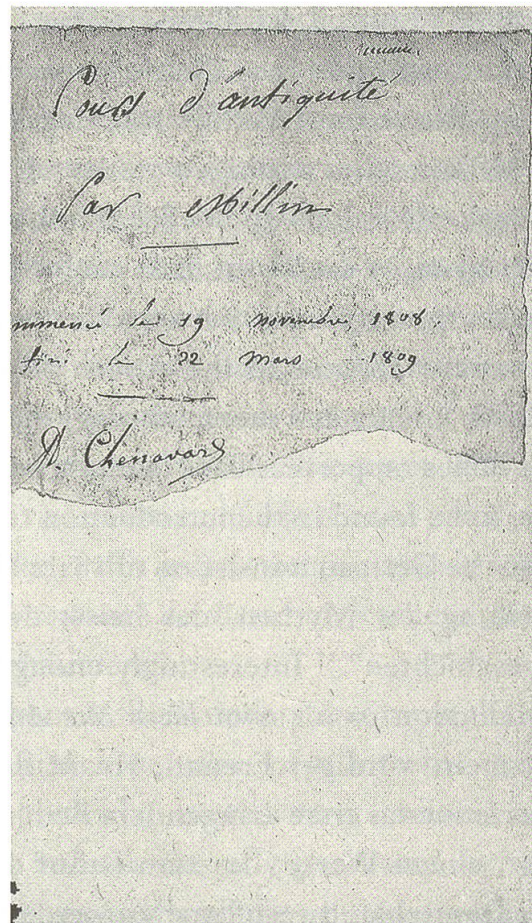 Cours d'antiquité
Par Millin
mmencé le 19 novembre 1808.
fini le 22 mars 1809
A. Chenavard